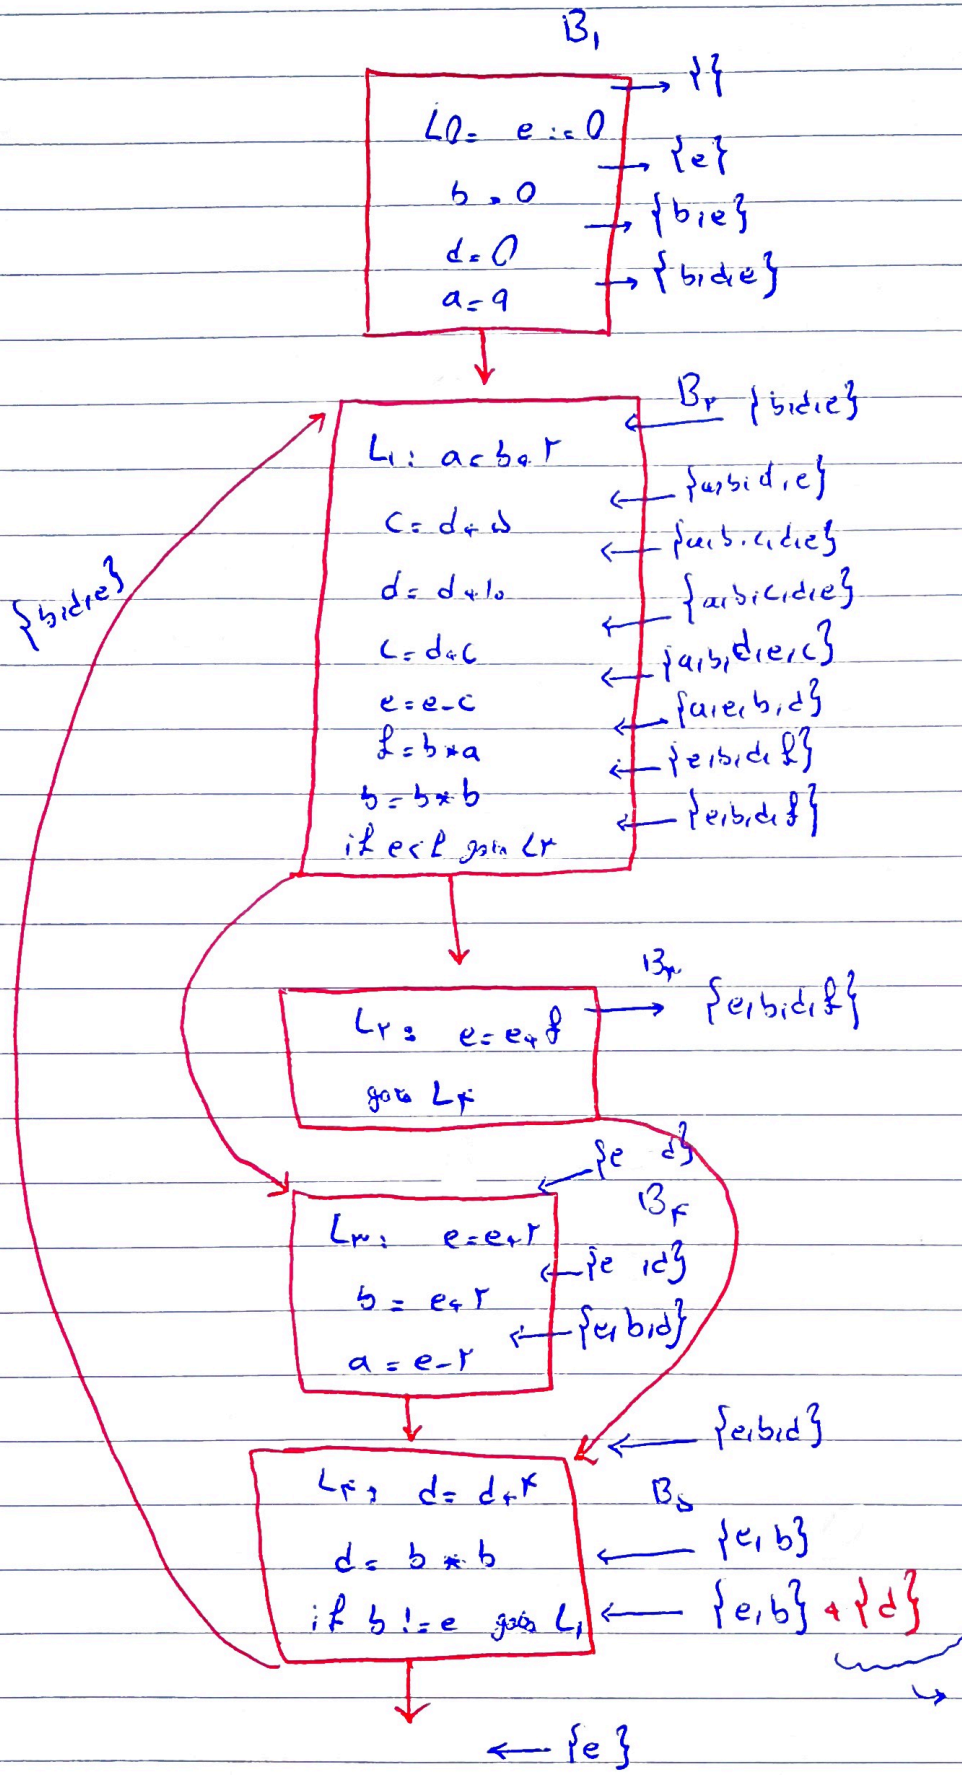 B₁
→ { }
L0= e := 0
→ {e}
b = 0
→ {b,e}
d = 0
→ {b,d,e}
a = 9
B۲ {b,d,e}
L₁: a = b + ۲
← {a,b,d,e}
c = d + ۵
← {a,b,c,d,e}
d = d + ۱۰
← {a,b,c,d,e}
c = d + c
← {a,b,d,e,c}
e = e - c
← {a,e,b,d}
f = b * a
← {e,b,d,f}
b = b * b
← {e,b,d,f}
if e < f goto L۳
{b,d,e}
B۳
→ {e,b,d,f}
L۲: e = e + f
goto L۴
← {e d}
B۴
L۳: e = e + ۲
← {e ,d}
b = e + ۲
← {e,b,d}
a = e - ۲
← {e,b,d}
L۴: d = d + ۴
B۵
← {e,b}
d = b * b
← {e,b} + {d}
if b != e goto L₁
← {e}